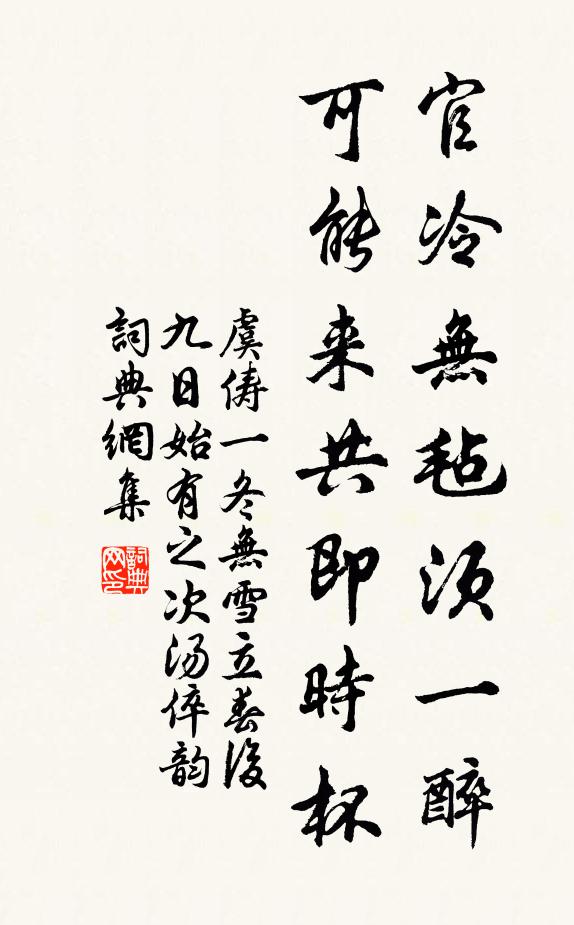 官冷無毡須一醉
可能来共即時杯
虞儔一冬無雪立春後
九日始有之次汤倅韵
詞典網集
詞典网印